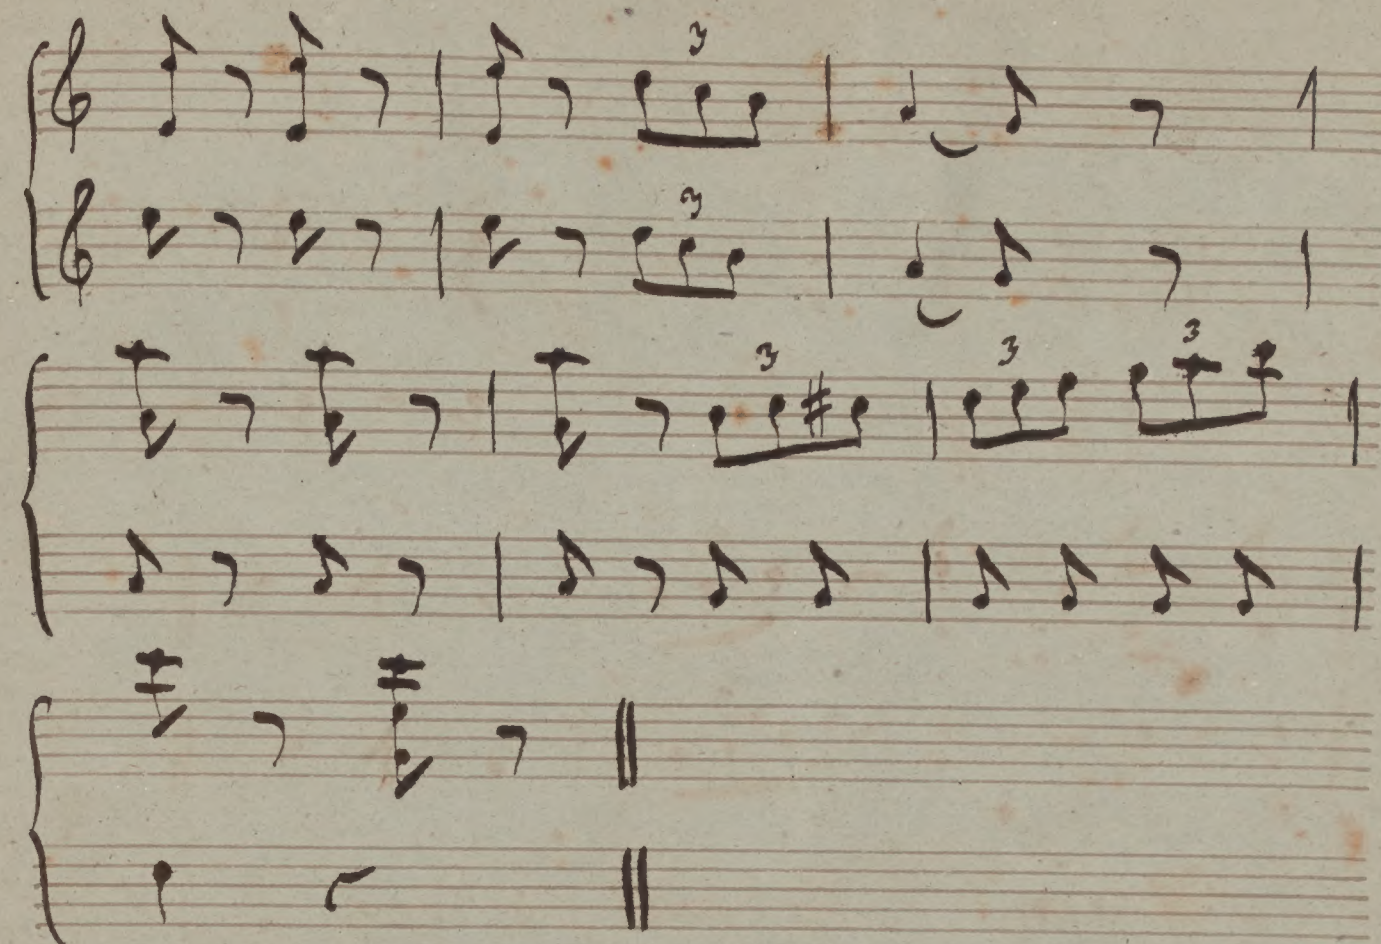 3
3
3 3 3